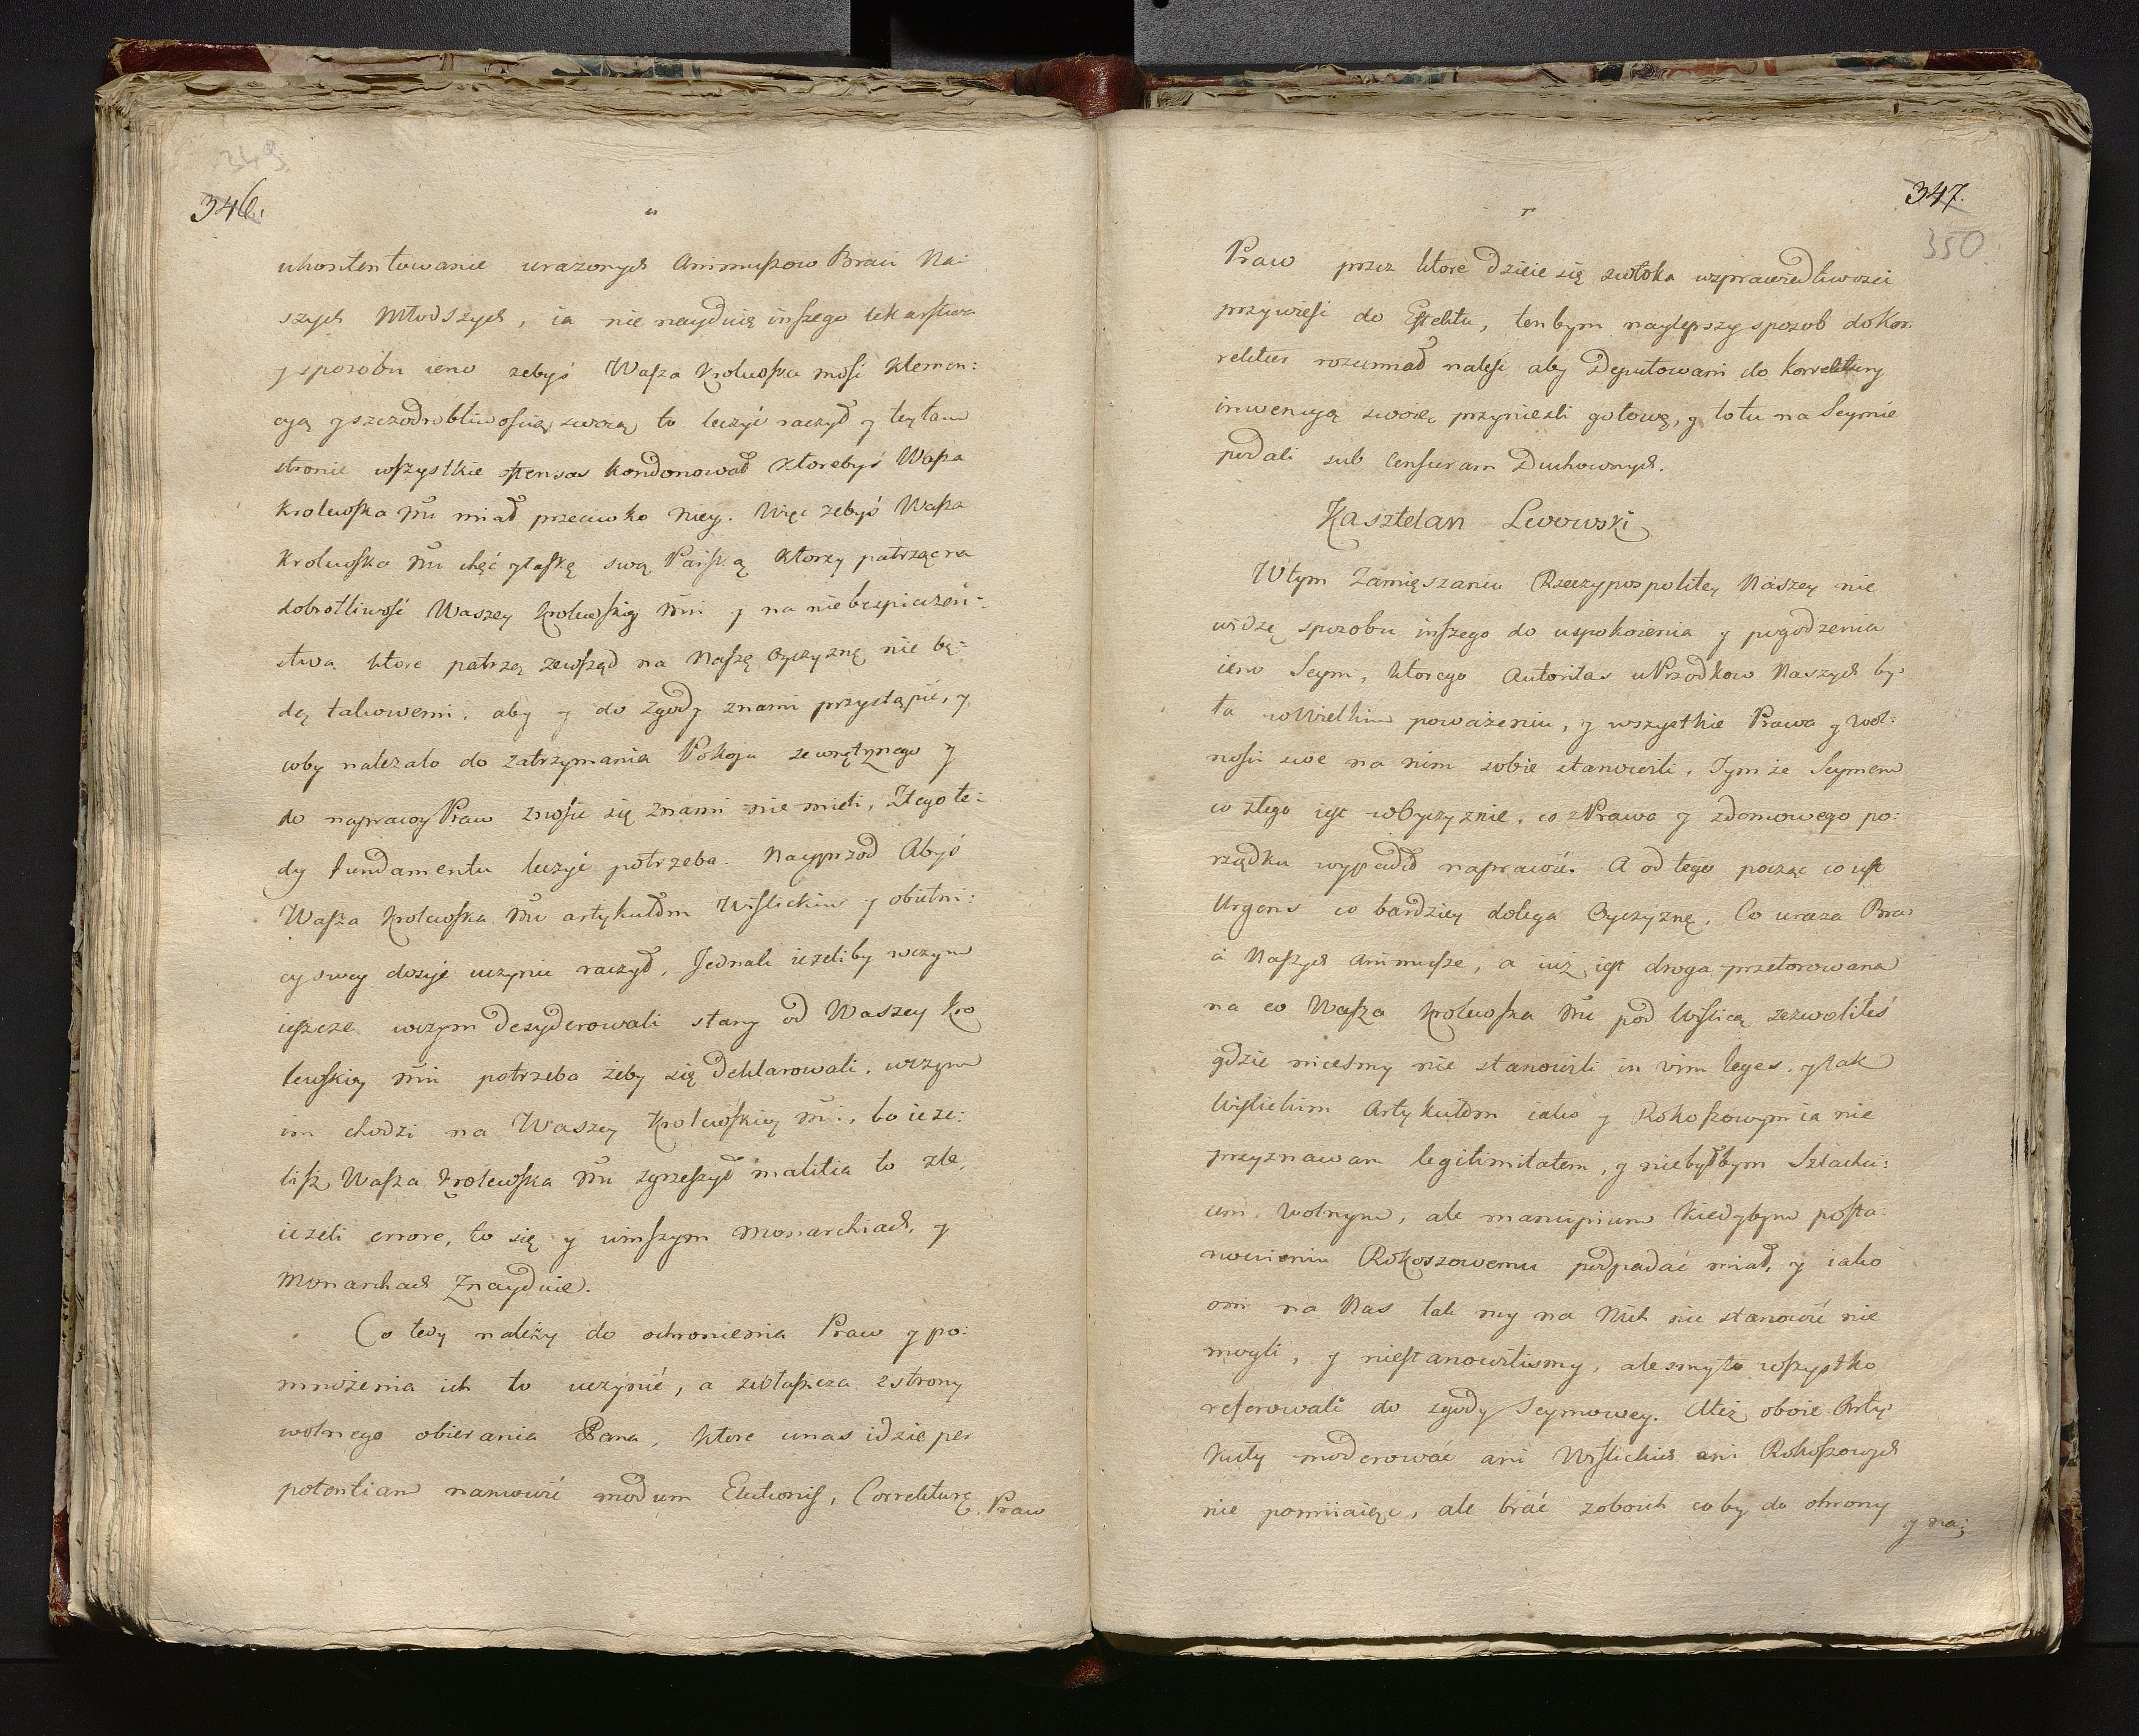 349.
346.
ukontentowanie urazonych Animuszow Braci Na=
szych Młodszych, ia nie nayduię inszego lekarstwa
y sposobu ieno zebyś Wasza Krolewska mość Klemen=
cyą y szczodrobliwością swoią to leczyć raczył y tey tam
stronie wszystkie offensas kondonował ktorebyś Wasza
Krolewska Mć miał przeciwko niey. Więc zebyś Wasza
Krolewska Mć chęć y łaskę swą Pańską ktorzy patrząc na
dobrotliwość Waszey Krolewskiey Mći y na niebezpieczeń=
stwa ktore patrzą zewsząd na Naszę Oyczyznę nie bę=
dą takowemi, aby y do zgody z nami przystąpić, y
coby nalezało do zatrzymania Pokoju zewnętrznego y
do naprawy Praw znosić się z nami nie mieli, Z tego te=
dy fundamentu leczyć potrzeba. Nayprzod Abyś
Wasza Krolewska Mć artykułom Wislickim y obietni=
cy swey dosyć uczynić raczył, Jednak iezeliby w czym
ieszcze w czym dezyderowali stany od Waszey Kro
lewskiey Mći potrzeba żeby się deklarowali, w czym
im chodzi na Waszey Krolewskiey Mći, bo ieze=
lisz Wasza Krolewska Mć zgrzeszył malitia to złe,
iezeli errore, to się y w inszym Monarchiach, y
Monarchach Znayduie.
Co tedy należy do ochronienia Praw y po=
mnożenia ich to uczynić, a zwłaszcza z strony
wolnego obierania Pana, ktore u nas idzie per
potentiam namowić modum Electionis, Correkturę
Praw
347.
350.
Praw przez ktore dzieie się zwłoka w sprawiedliwości
przywieść do Effektu, ten bym naylepszy sposob do Kor
rektur rozumiał naleść, aby Deputowani do korrektury
inwencyą swoię przynieśli gotową, y to tu na Seymie
podali sub Censuram Duchownych.
Kasztelan Lwowski
W tym Zamięszaniu Rzeczypospolitey Naszey nie
widzę sposobu inszego do uspokoienia y pogodzenia
ieno Seym, ktorego Autoritas u Przodkow Naszych by
ła w Wielkim poważeniu, y wszystkie Prawa y wol=
ności swe na nim sobie stanowili, Tym ze Seymem
co złego iest w Oyczyznie, co z Prawa y z domowego po=
rządku wypadło naprawić. A od tego począc co iest
Urgens co bardziey dolega Oyczyznę, Co uraza Bra
ci Naszych Animusze, a iuż iest droga przetorowana
na co Wasza Krolewska Mć pod Wislicą zezwoliłeś
gdzie niceśmy nie stanowili in vim leges, y tak
Wislickim Artykułom iako y Rokoszowym ia nie
przyznawam legitimitatem, y niebyłbym Szlachci=
cem wolnym, ale mancipium kiedybym posta=
nowieniu Rokoszowemu podpadać miał, y iako
oni na Nas tak my na Nich nic stanowić nie
mogli, y niestanowilismy, alesmy to wszystko
referowali do zgody Seymowey. Też oboie Arty
kuły moderować ani Wislickich ani Rokoszowych
nie pomiiaiąc, ale brać z oboich co by do ohrony
y na=